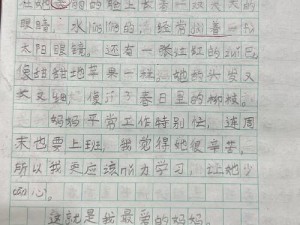 的脸上长着一双大大的
眼睛，水
太阳眼镜。还有一张红红的
像甜甜地苹果一样。她的头发又
又　像　春日里的柳枝。
妈妈平常工作特别忙，连周
末也要上班。我觉得她很辛苦。
所以我更应该努力学习，让她少
心。
这就是我最爱的妈妈。